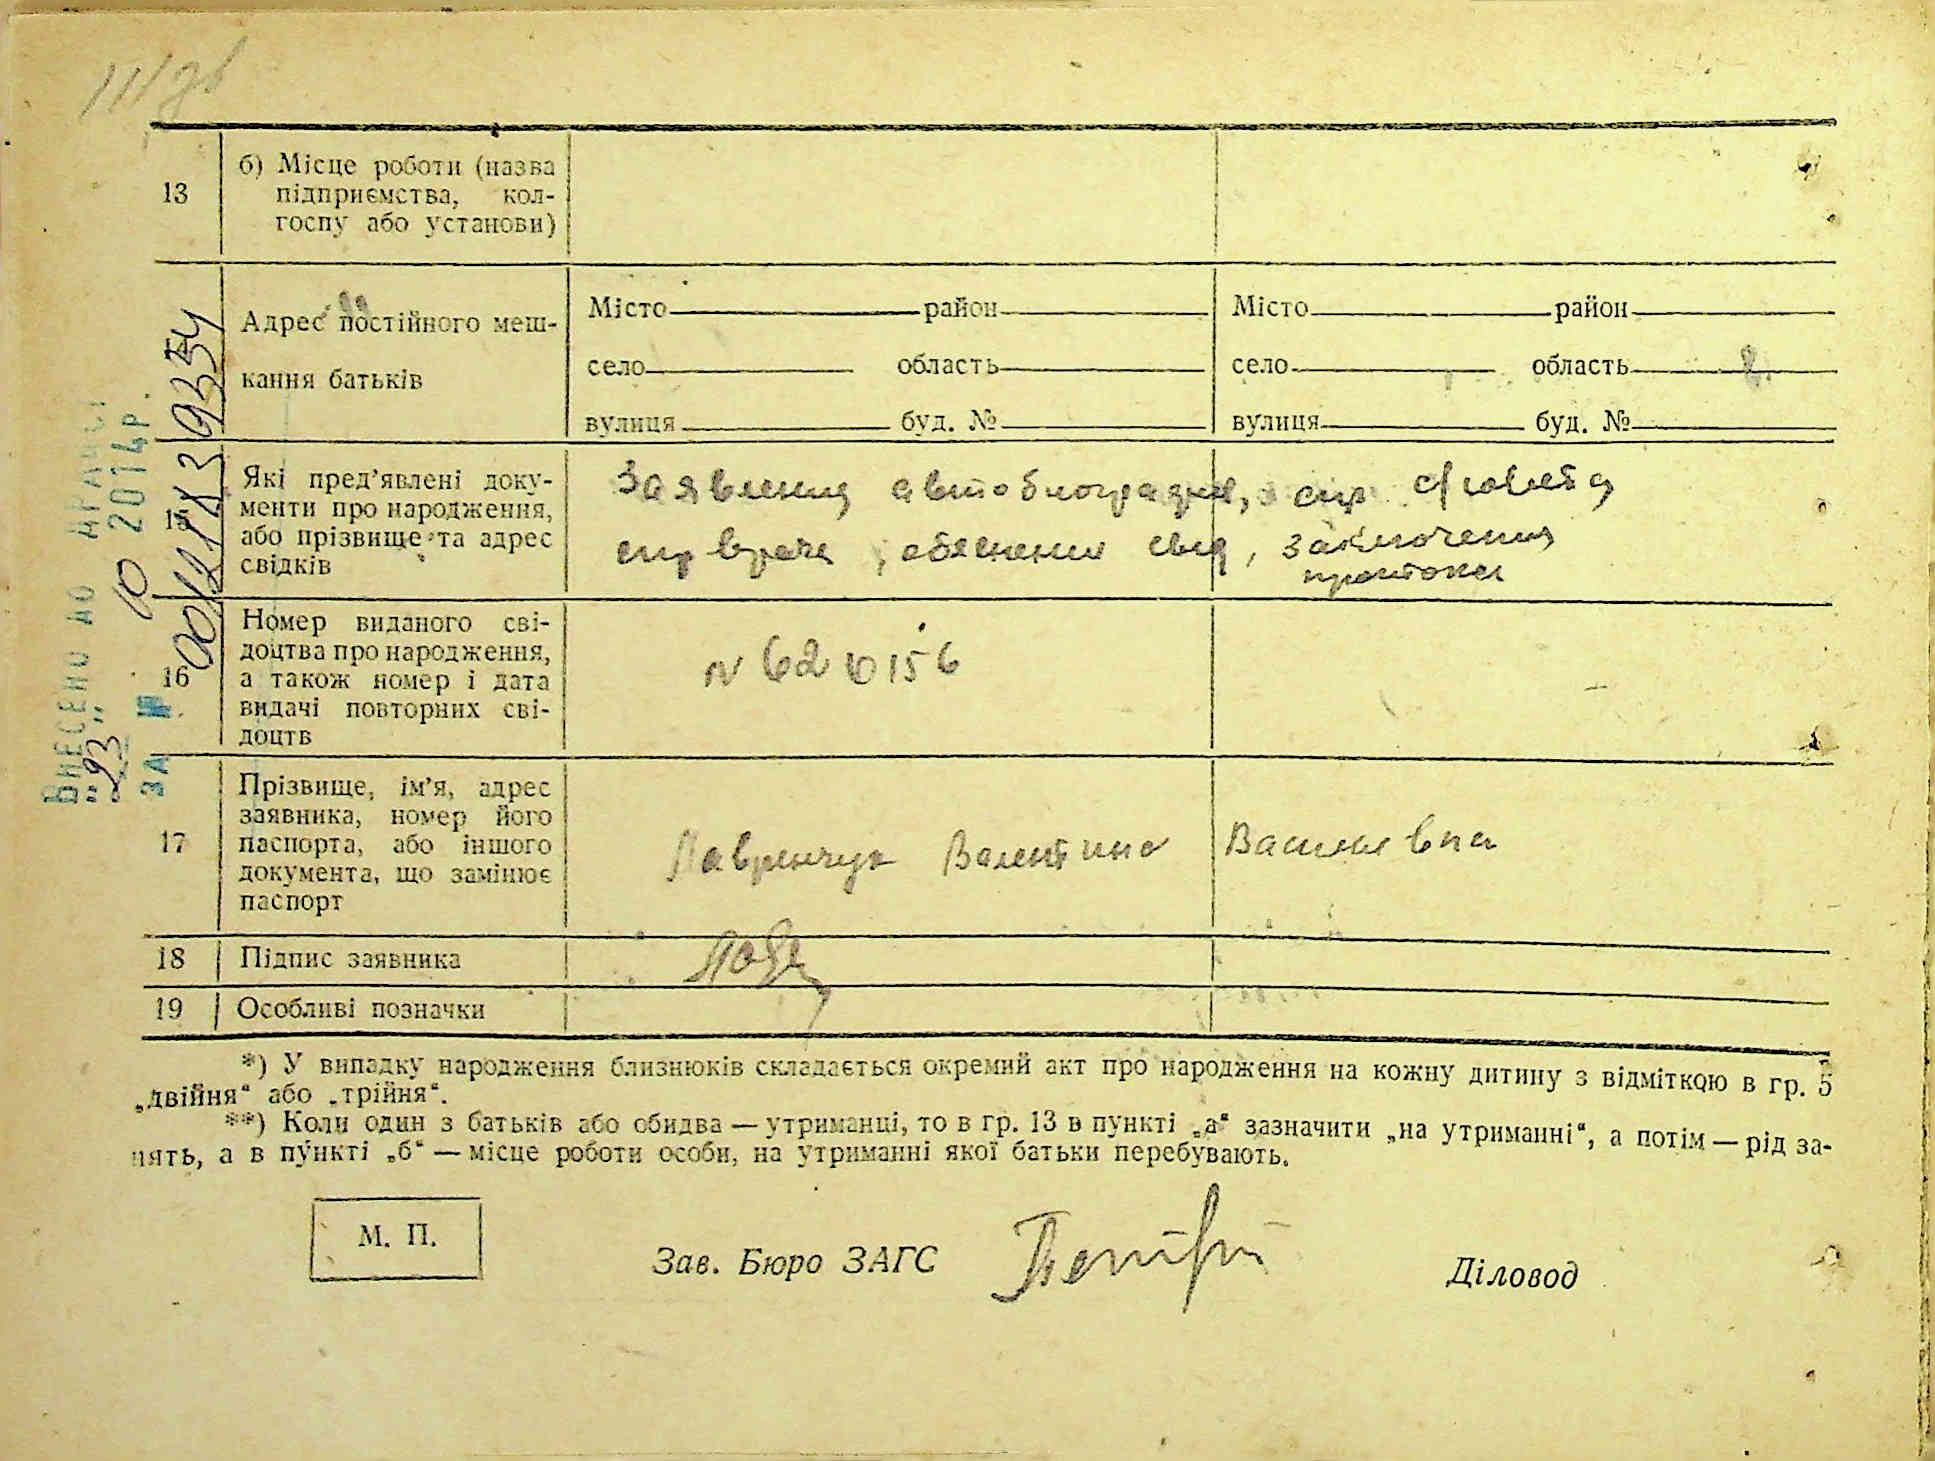 13
б) Місце роботи (назва
підприємства, кол-
госпу або установи)
Адрес постійного меш-
кання батьків
Місто район
село область
вулиця буд. №
Місто район
село область
вулиця буд. №
15
Які пред’явлені доку-
менти про народження,
або прізвище та адрес
свідків
Заявления автобиография, спр с/совета
спр врача, обяснения свид, заключения
протокол
16
Номер виданого сві-
доцтва про народження,
а також номер і дата
видачі повторних сві-
доцтв
N 620156
17
Прізвище, ім’я, адрес
заявника, номер його
паспорта, або іншого
документа, що замінює
паспорт
Лавринчук Валентина Васильевна
18
Підпис заявника
19
Особливі позначки
*) У випадку народження близнюків складається окремий акт про народження на кожну дитину з відміткою в гр. 5
„двійня“ або „трійня“.
**) Коли один з батьків або обидва — утриманці, то в гр. 13 в пункті „а“ зазначити „на утриманні“, а потім — рід за-
нять, а в пункті „б“ — місце роботи особи, на утриманні якої батьки перебувають.
М. П.
Зав. Бюро ЗАГС
Діловод
ВНЕСЕНО ДО ДРАЦСГ
„23“ 10 2014р.
ЗА №